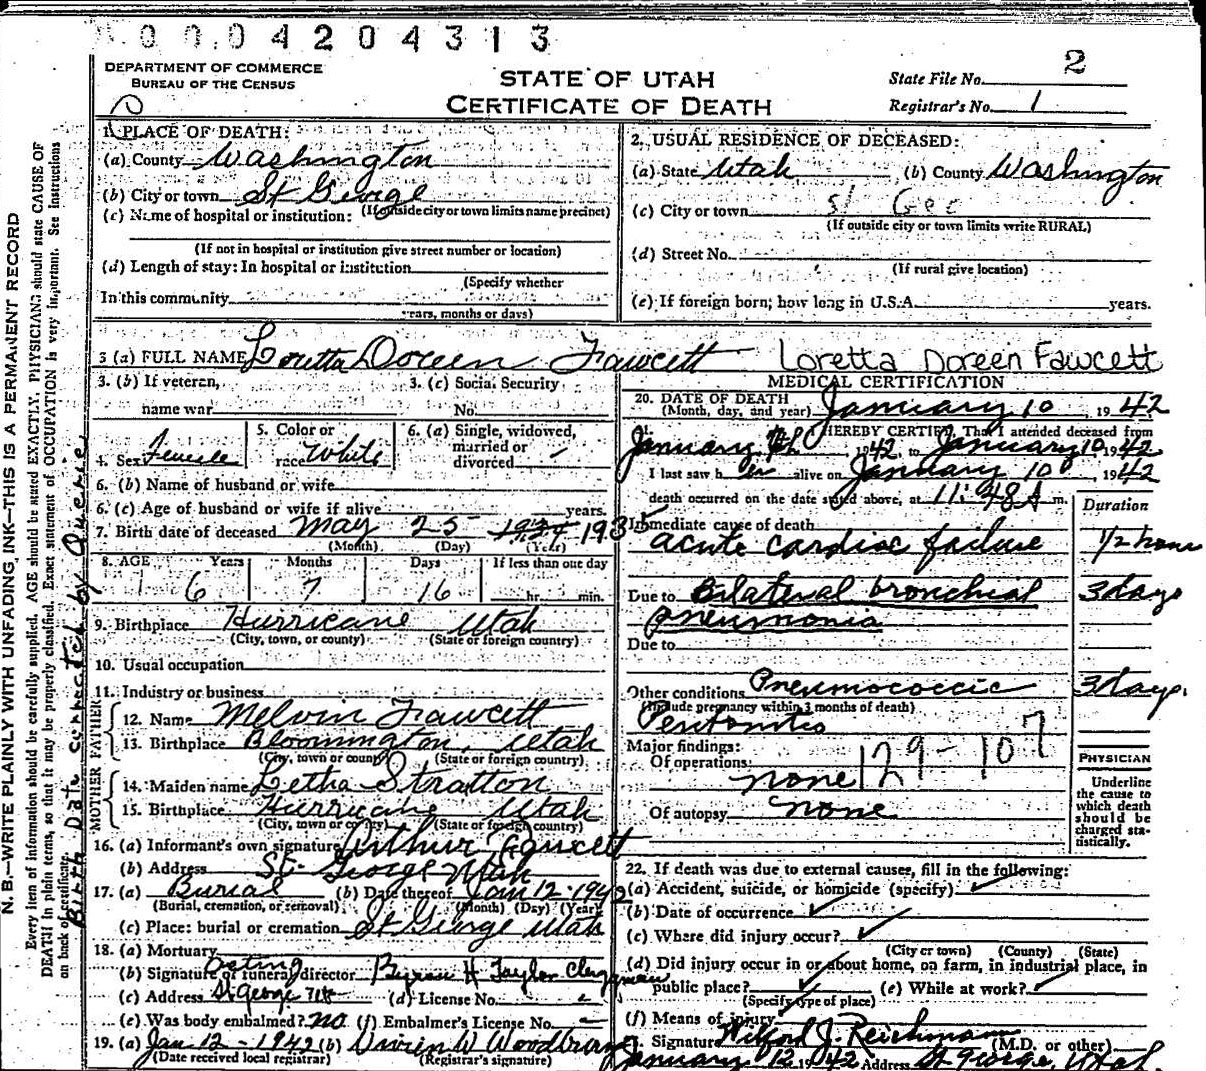 0 0 0 4 2 0 4 3 1 3
DEPARTMENT OF COMMERCE
BUREAU OF THE CENSUS
STATE OF UTAH
CERTIFICATE OF DEATH
State File No. 2
Registrar's No. 1
N. B.—WRITE PLAINLY WITH UNFADING INK—THIS IS A PERMANENT RECORD
Every item of information should be carefully supplied. AGE should be stated EXACTLY. PHYSICIANS should state CAUSE OF
DEATH in plain terms, so that it may be properly classified. Exact statement of OCCUPATION is very important. See instructions
on back of certificate.
Birth Date corrected by Querie
1. PLACE OF DEATH:
(a) County Washington
(b) City or town St George
(If outside city or town limits name precinct)
(c) Name of hospital or institution:
(If not in hospital or institution give street number or location)
(d) Length of stay: In hospital or institution
(Specify whether
In this community
years, months or days)
2. USUAL RESIDENCE OF DECEASED:
(a) State Utah (b) County Washington
(c) City or town St Geo
(If outside city or town limits write RURAL)
(d) Street No.
(If rural give location)
(e) If foreign born; how long in U.S.A. years.
3 (a) FULL NAME Loretta Doreen Fawcett Loretta Doreen Fawcett
3. (b) If veteran,
name war
3. (c) Social Security
No.
4. Sex Female
5. Color or
race White
6. (a) Single, widowed,
married or
divorced
6. (b) Name of husband or wife
6. (c) Age of husband or wife if alive years.
7. Birth date of deceased May 25 1934 1935
(Month) (Day) (Year)
8. AGE Years Months Days If less than one day
6 7 16 hr. min.
9. Birthplace Hurricane Utah
(City, town, or county) (State or foreign country)
10. Usual occupation
11. Industry or business
FATHER
12. Name Melvin Fawcett
13. Birthplace Bloomington, Utah
(City, town or county) (State or foreign country)
MOTHER
14. Maiden name Letha Stratton
15. Birthplace Hurricane Utah
(City, town or county) (State or foreign country)
16. (a) Informant's own signature Arthur Fawcett
(b) Address St. George Utah
17. (a) Burial (b) Date thereof Jan 12 1942
(Burial, cremation, or removal) (Month) (Day) (Year)
(c) Place: burial or cremation St George Utah
18. (a) Mortuary
Acting
(b) Signature of funeral director Byron H Taylor Clergyman
(c) Address St George Utah (d) License No.
(e) Was body embalmed? no (f) Embalmer's License No.
19. (a) Jan 12 - 1942 (b) W Woodbury
(Date received local registrar) (Registrar's signature)
MEDICAL CERTIFICATION
20. DATE OF DEATH
(Month, day, and year) January 10, 1942
21. I HEREBY CERTIFY, That I attended deceased from
January 7th 1942, to January 10 1942
I last saw her alive on January 10, 1942
death occurred on the date stated above, at 11:48 A m.
Duration
Immediate cause of death
acute cardiac failure 1/2 hour
Due to Bilateral bronchial 3 days
pneumonia
Due to
Other conditions Pneumococcic 3 days.
(Include pregnancy within 3 months of death)
Peritonitis
Major findings:
Of operations none 129-107
Of autopsy none
PHYSICIAN
Underline
the cause to
which death
should be
charged sta-
tistically.
22. If death was due to external causes, fill in the following:
(a) Accident, suicide, or homicide (specify)
(b) Date of occurrence
(c) Where did injury occur?
(City or town) (County) (State)
(d) Did injury occur in or about home, on farm, in industrial place, in
public place? (e) While at work?
(Specify type of place)
(f) Means of injury
Signature Wilford J. Reichmann (M.D. or other)
January 12 1942 Address St George, Utah.